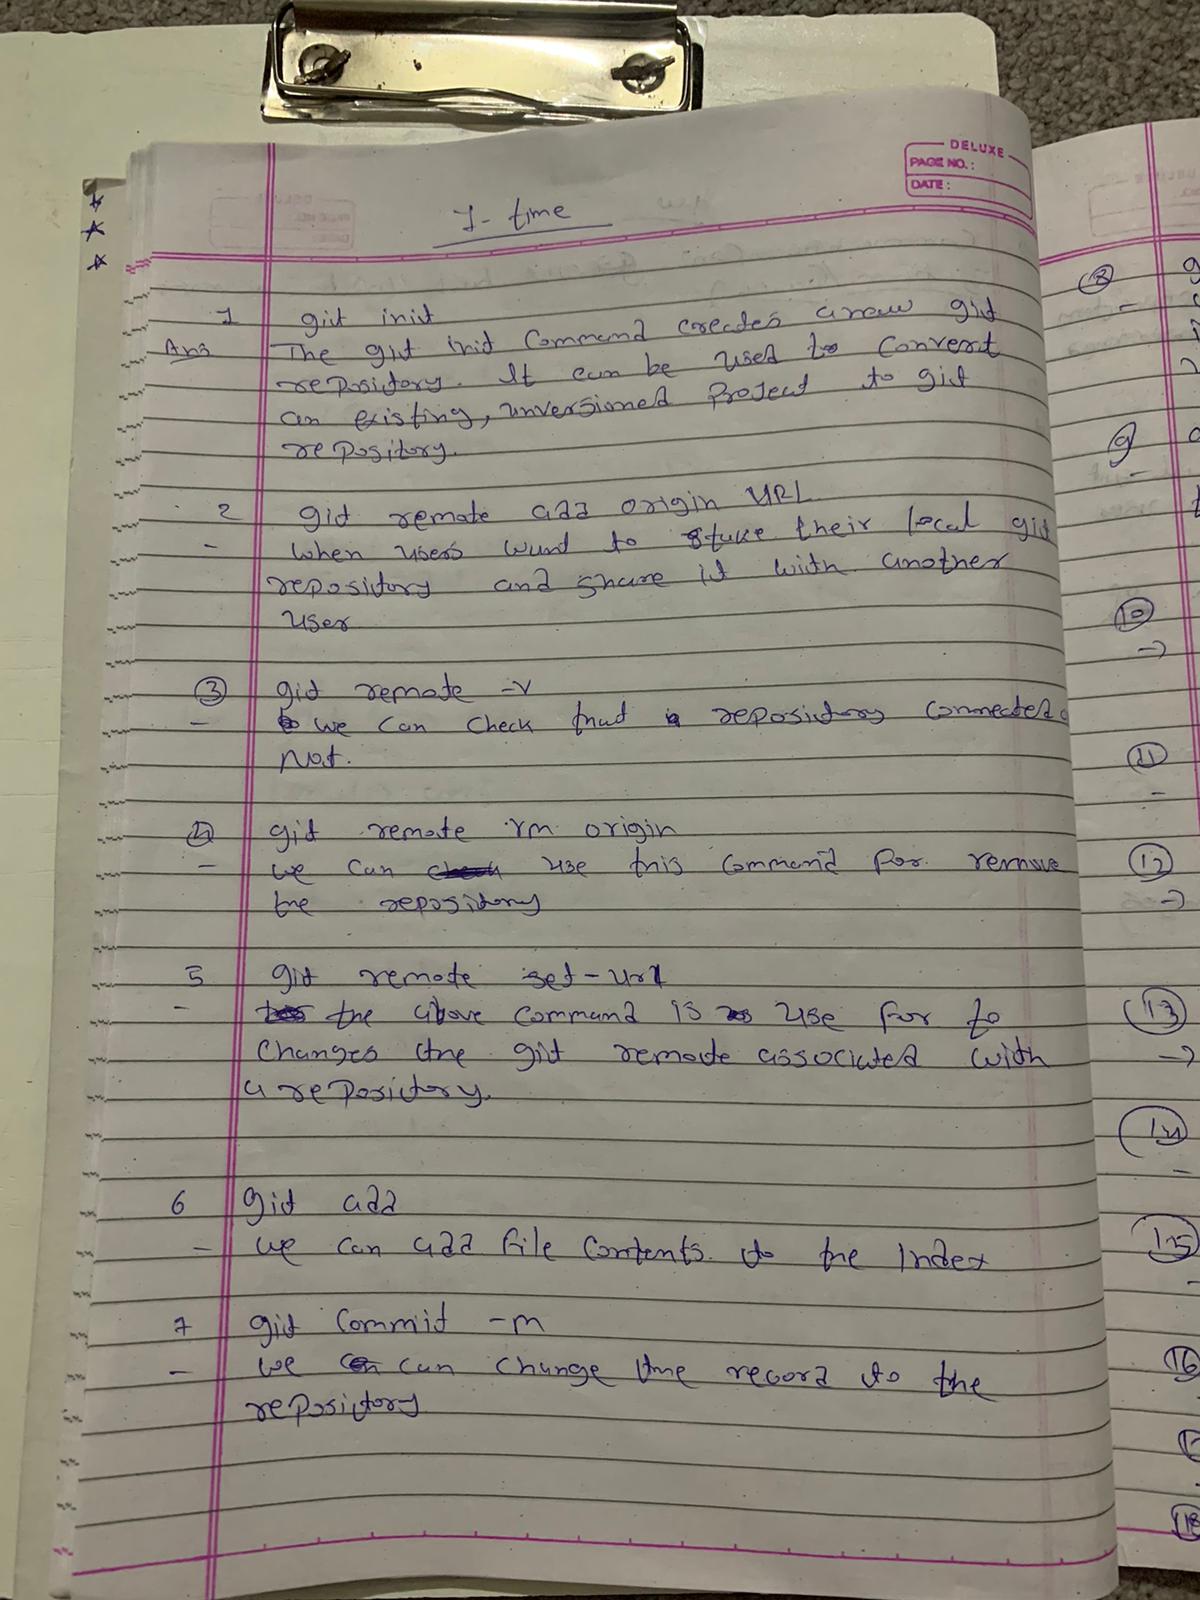 DELUXE
PAGE NO. :
DATE :
1 - time
1 git init
Ans The git init Command creates a new git
repository. It can be used to Convert
an existing, unversioned Project to git
repository.
2 git remote add origin URL
- when users want to stuke their local git
repository and share it with another
user
3 git remote -v
- we can check that repository connected
not.
4 git remote rm origin
- we can use this command for remove
the repository
5 git remote set-url
- the above command is use for to
changes the git remote associated with
a repository.
6 git add
- we can add file contents to the Index
7 git Commit -m
- we can change the record to the
repository
8
9
10
11
12
13
14
15
16
18